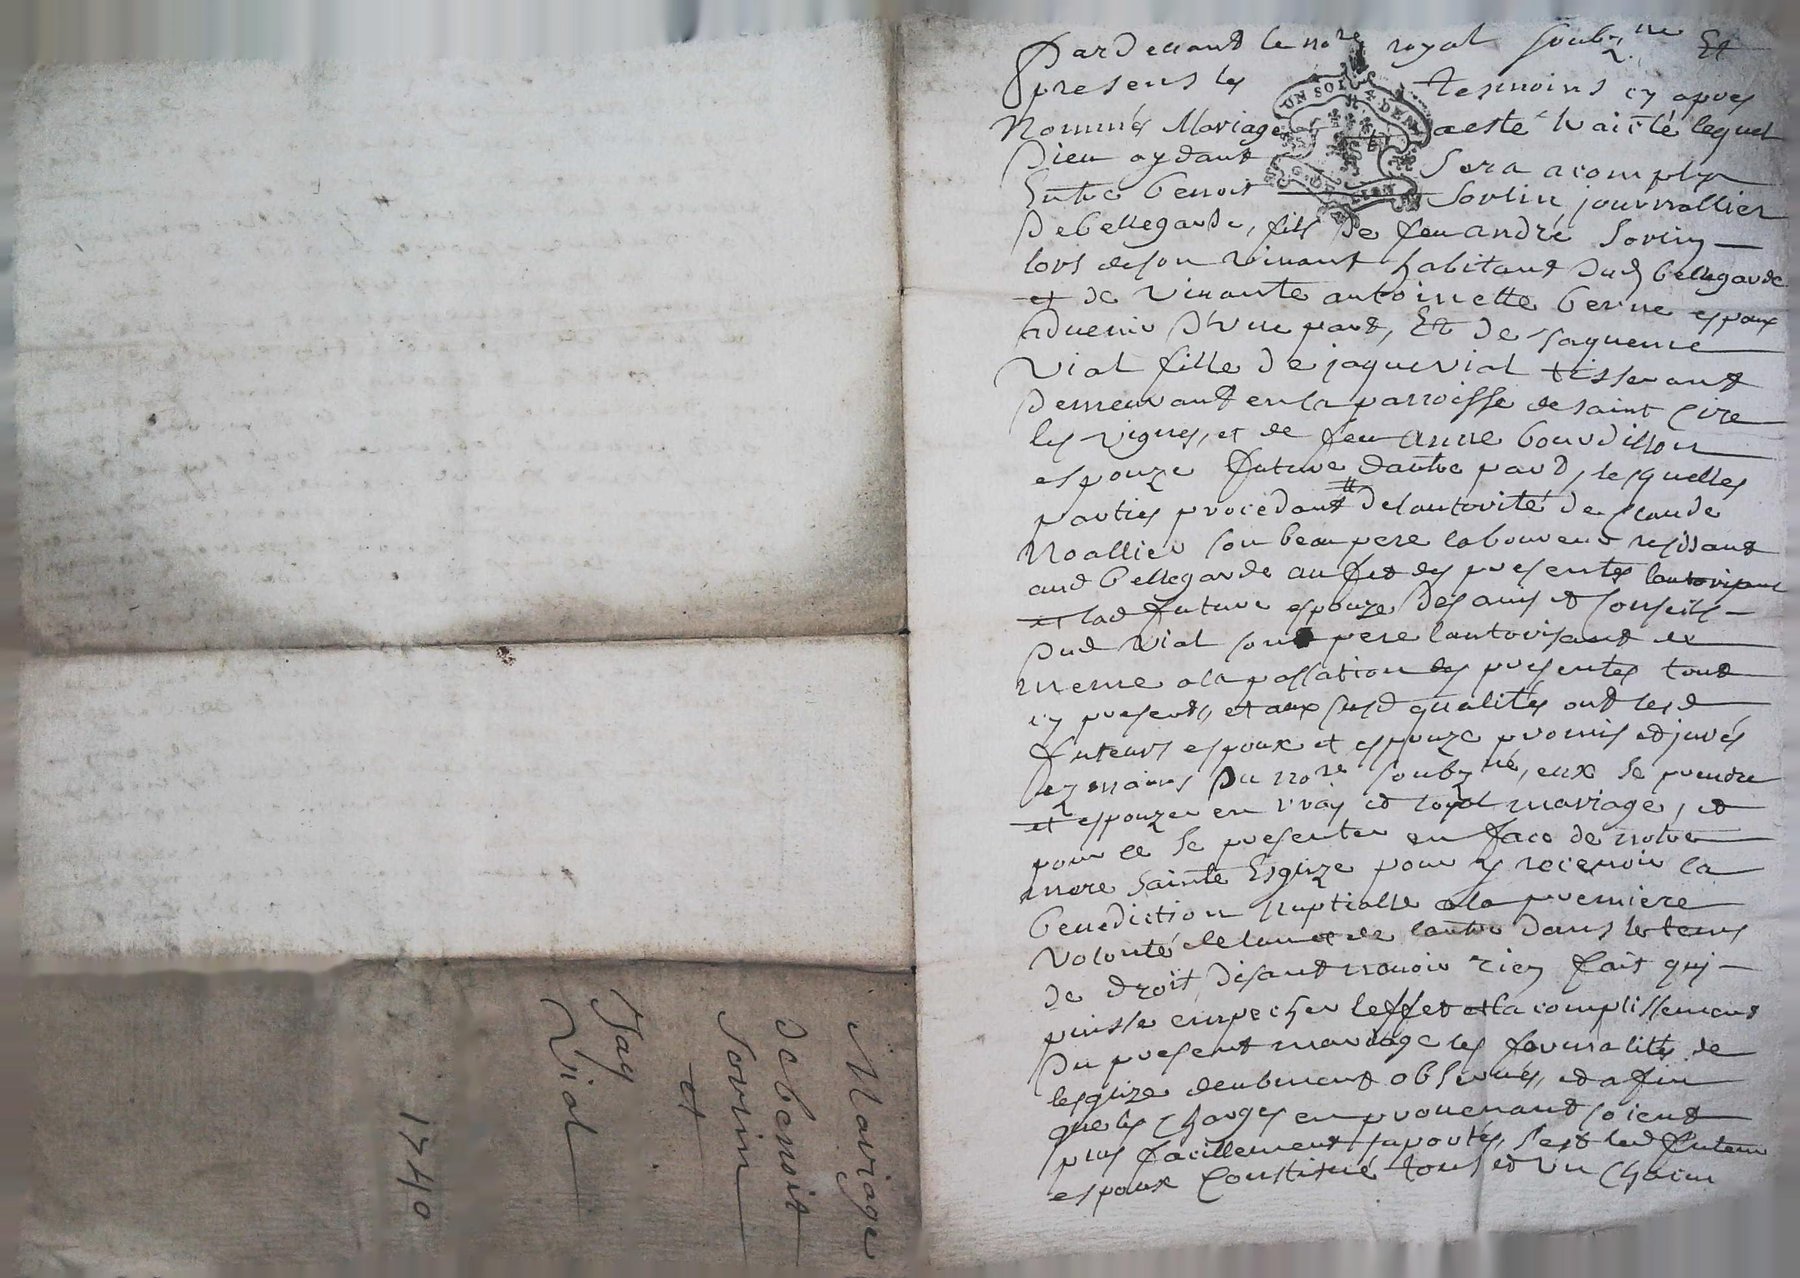 Mariage
de benoit
Sorlin
et
Jaq
Vial
1740
Pardevant le nore royal soubzne Et
presens les tesmoins cy apres
UN SOL 4 DEN
G. DE LION
Nommés Mariage a esté traicté lequel
Dieu aydant Sera acomplyr
Entre benoit Sorlin journallier
de bellegarde, fils de feu andré Sorlin
lors de son vivant habitant dud bellegarde
et de vivante antoinette berne espoux
advenir d'une part, Et de Jaqueme
Vial fille de jaque vial tisserant
demeurant en la parroisse de saint Cire
les vignes, et de feu anne bourdisson
espouze future dautre part, lesquelles
parties procedant # de lautorité de Claude
Noallier son beau pere laboureur residant
aud bellegarde au fet des presentes lautorisant
et lad future espouze des avis et conseils
dud Vial son pere lautorisant de
meme a la passation des presentes tout
cy presents, et aux susd qualités ont lesd
futeurs espoux et espouze promis et jurés
ez mains du nore soubzné, eux se prendre
et espouzer en vray et loyal mariage, et
pour ce se presenter en face de notre
mere Sainte Esglize pour y recevoir la
benediction nuptialle a la premiere
volonté de lun et de lautre dans le tems
de droit, disant navoir rien fait qui
puisse empecher leffet et lacomplissement
du present mariage les formalités de
lesglize deubment observés, et afin
que les charges en provenant soient
plus facillement suportés, sest led futeur
espoux Constitué tous et un chacun